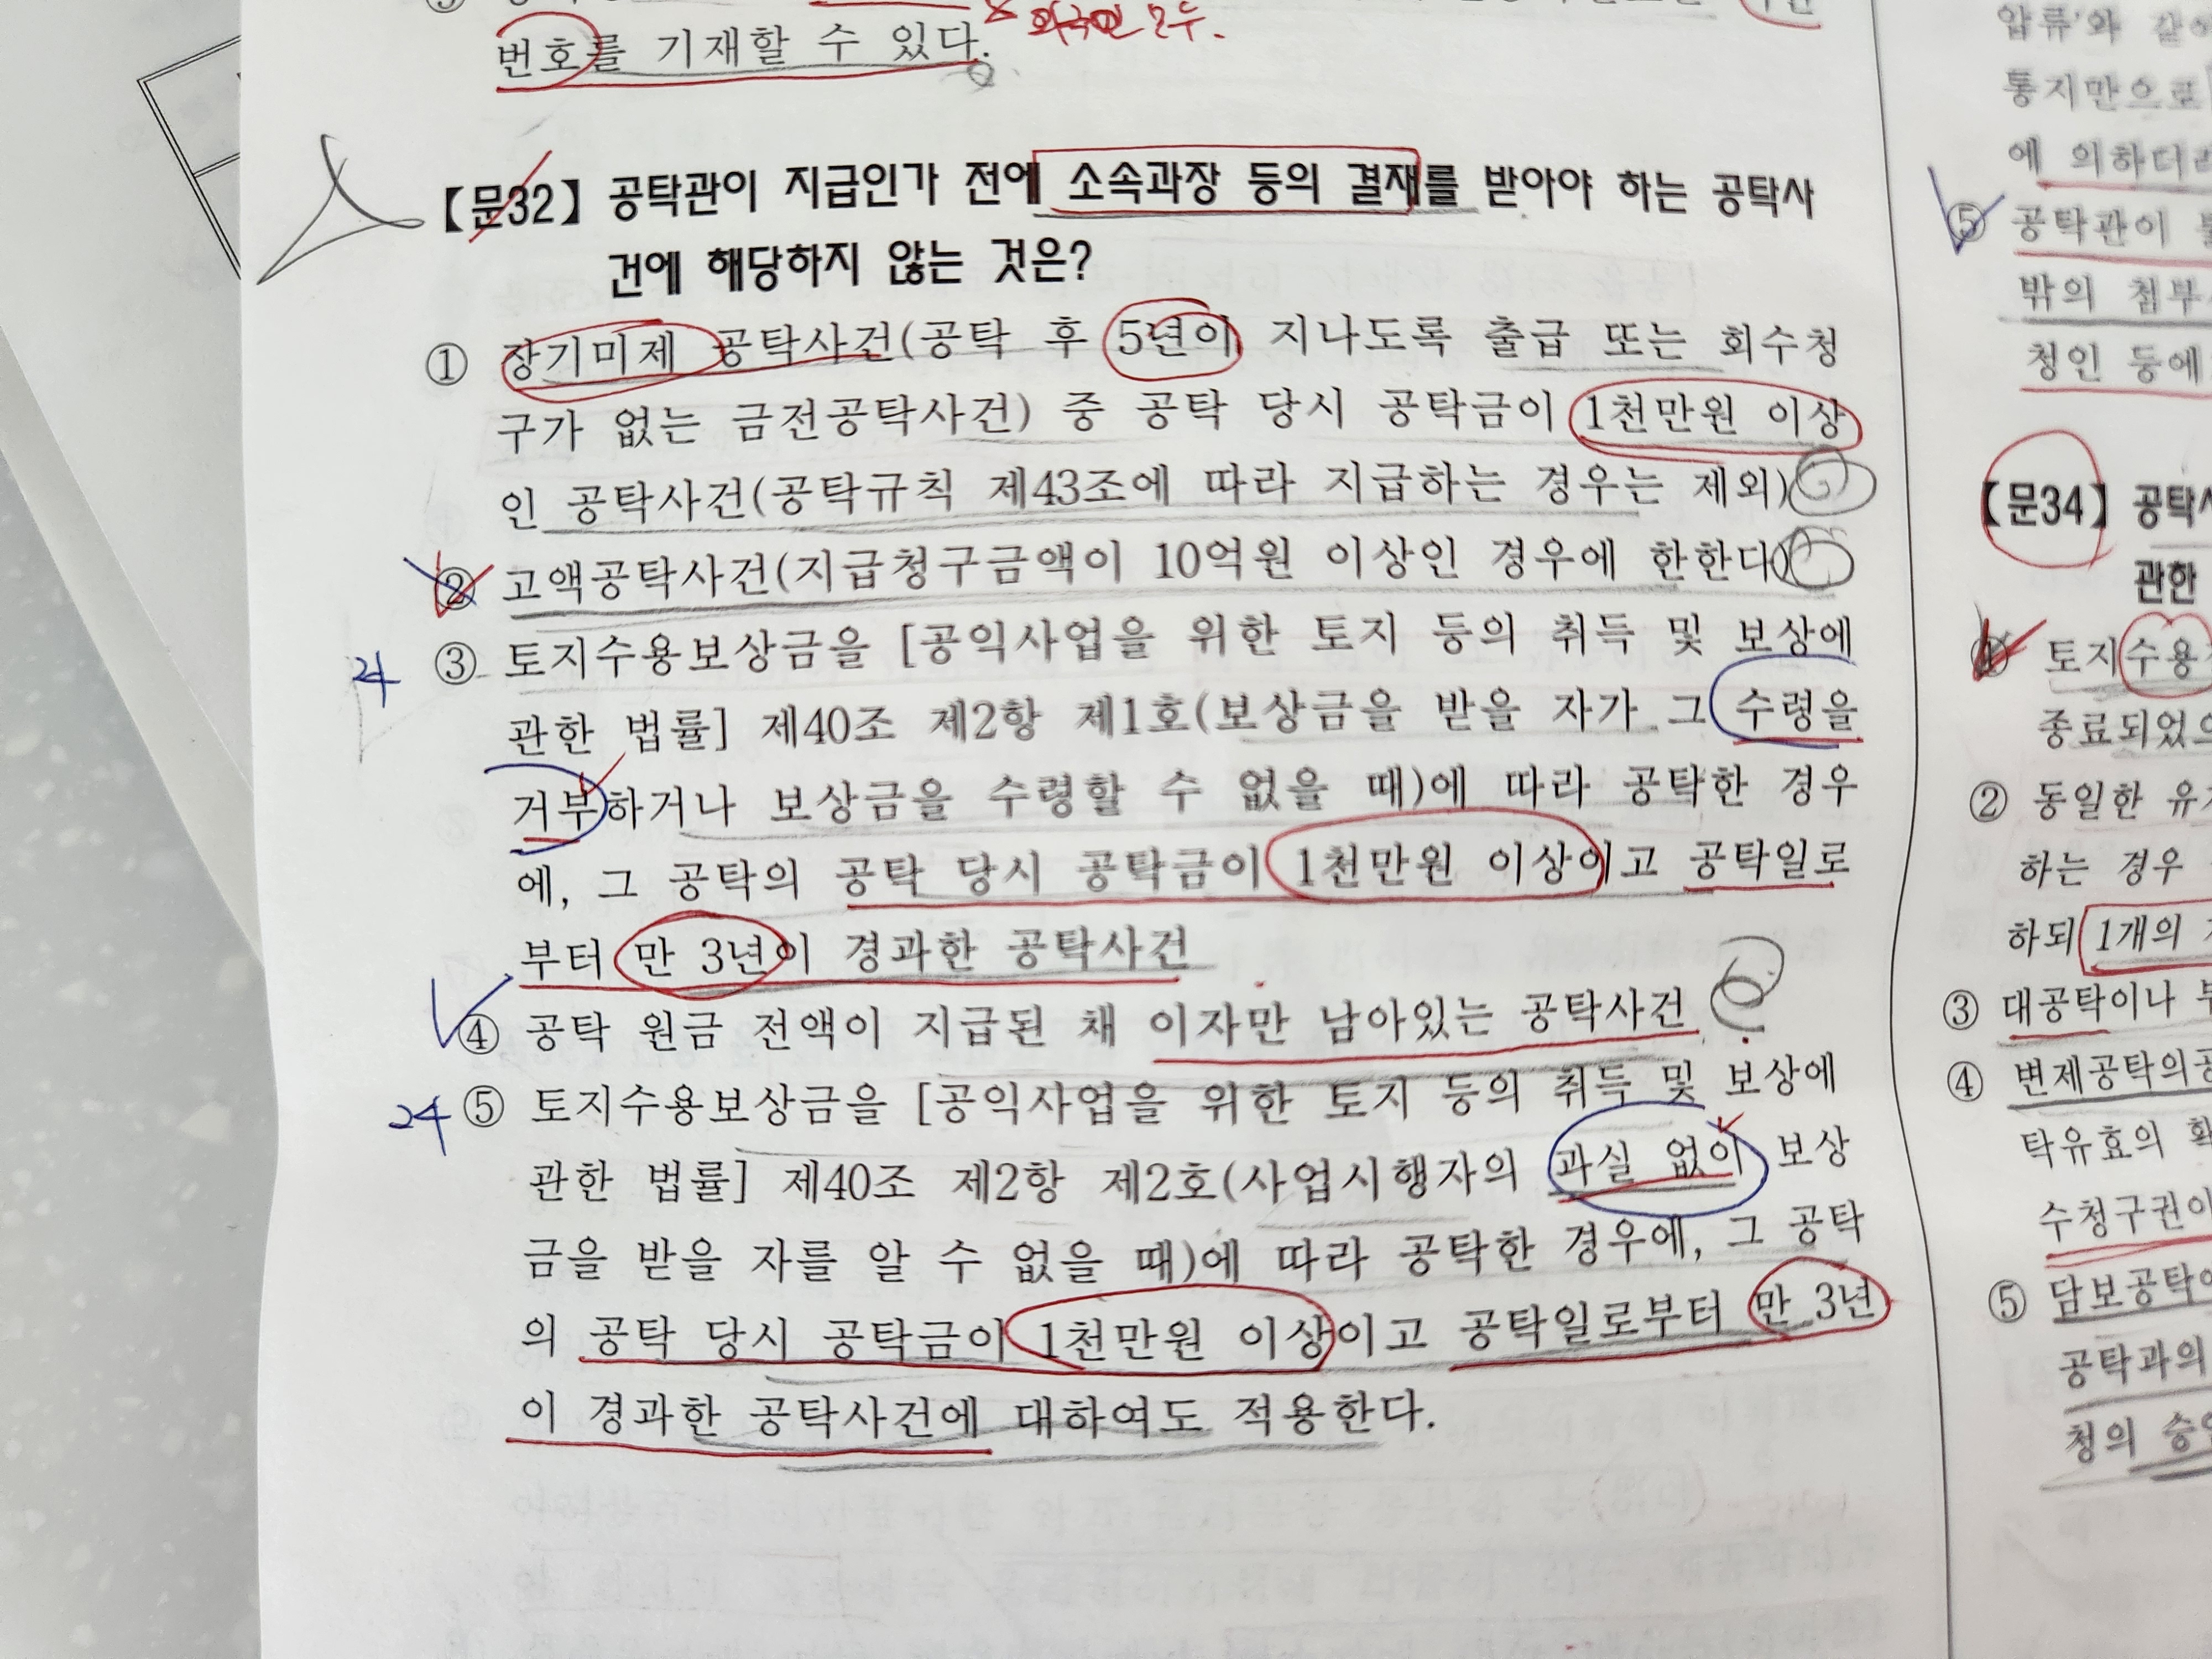 번호를 기재할 수 있다.
외국인 모두.
【문32】 공탁관이 지급인가 전에 소속과장 등의 결재를 받아야 하는 공탁사
건에 해당하지 않는 것은?
① 장기미제 공탁사건(공탁 후 5년이 지나도록 출급 또는 회수청
구가 없는 금전공탁사건) 중 공탁 당시 공탁금이 1천만원 이상
인 공탁사건(공탁규칙 제43조에 따라 지급하는 경우는 제외)
② 고액공탁사건(지급청구금액이 10억원 이상인 경우에 한한다)
24
③ 토지수용보상금을 [공익사업을 위한 토지 등의 취득 및 보상에
관한 법률] 제40조 제2항 제1호(보상금을 받을 자가 그 수령을
거부하거나 보상금을 수령할 수 없을 때)에 따라 공탁한 경우
에, 그 공탁의 공탁 당시 공탁금이 1천만원 이상이고 공탁일로
부터 만 3년이 경과한 공탁사건
④ 공탁 원금 전액이 지급된 채 이자만 남아있는 공탁사건
24
⑤ 토지수용보상금을 [공익사업을 위한 토지 등의 취득 및 보상에
관한 법률] 제40조 제2항 제2호(사업시행자의 과실 없이 보상
금을 받을 자를 알 수 없을 때)에 따라 공탁한 경우에, 그 공탁
의 공탁 당시 공탁금이 1천만원 이상이고 공탁일로부터 만 3년
이 경과한 공탁사건에 대하여도 적용한다.
압류'와
통지만으로
에 의하더라
⑤ 공탁관이
밖의 첨부
청인 등에
【문34】 공탁사
관한
① 토지수용
종료되었으
② 동일한 유
하는 경우
하되 1개의
③ 대공탁이나
④ 변제공탁의
탁유효의
수청구권이
⑤ 담보공탁
공탁과의
청의 승인